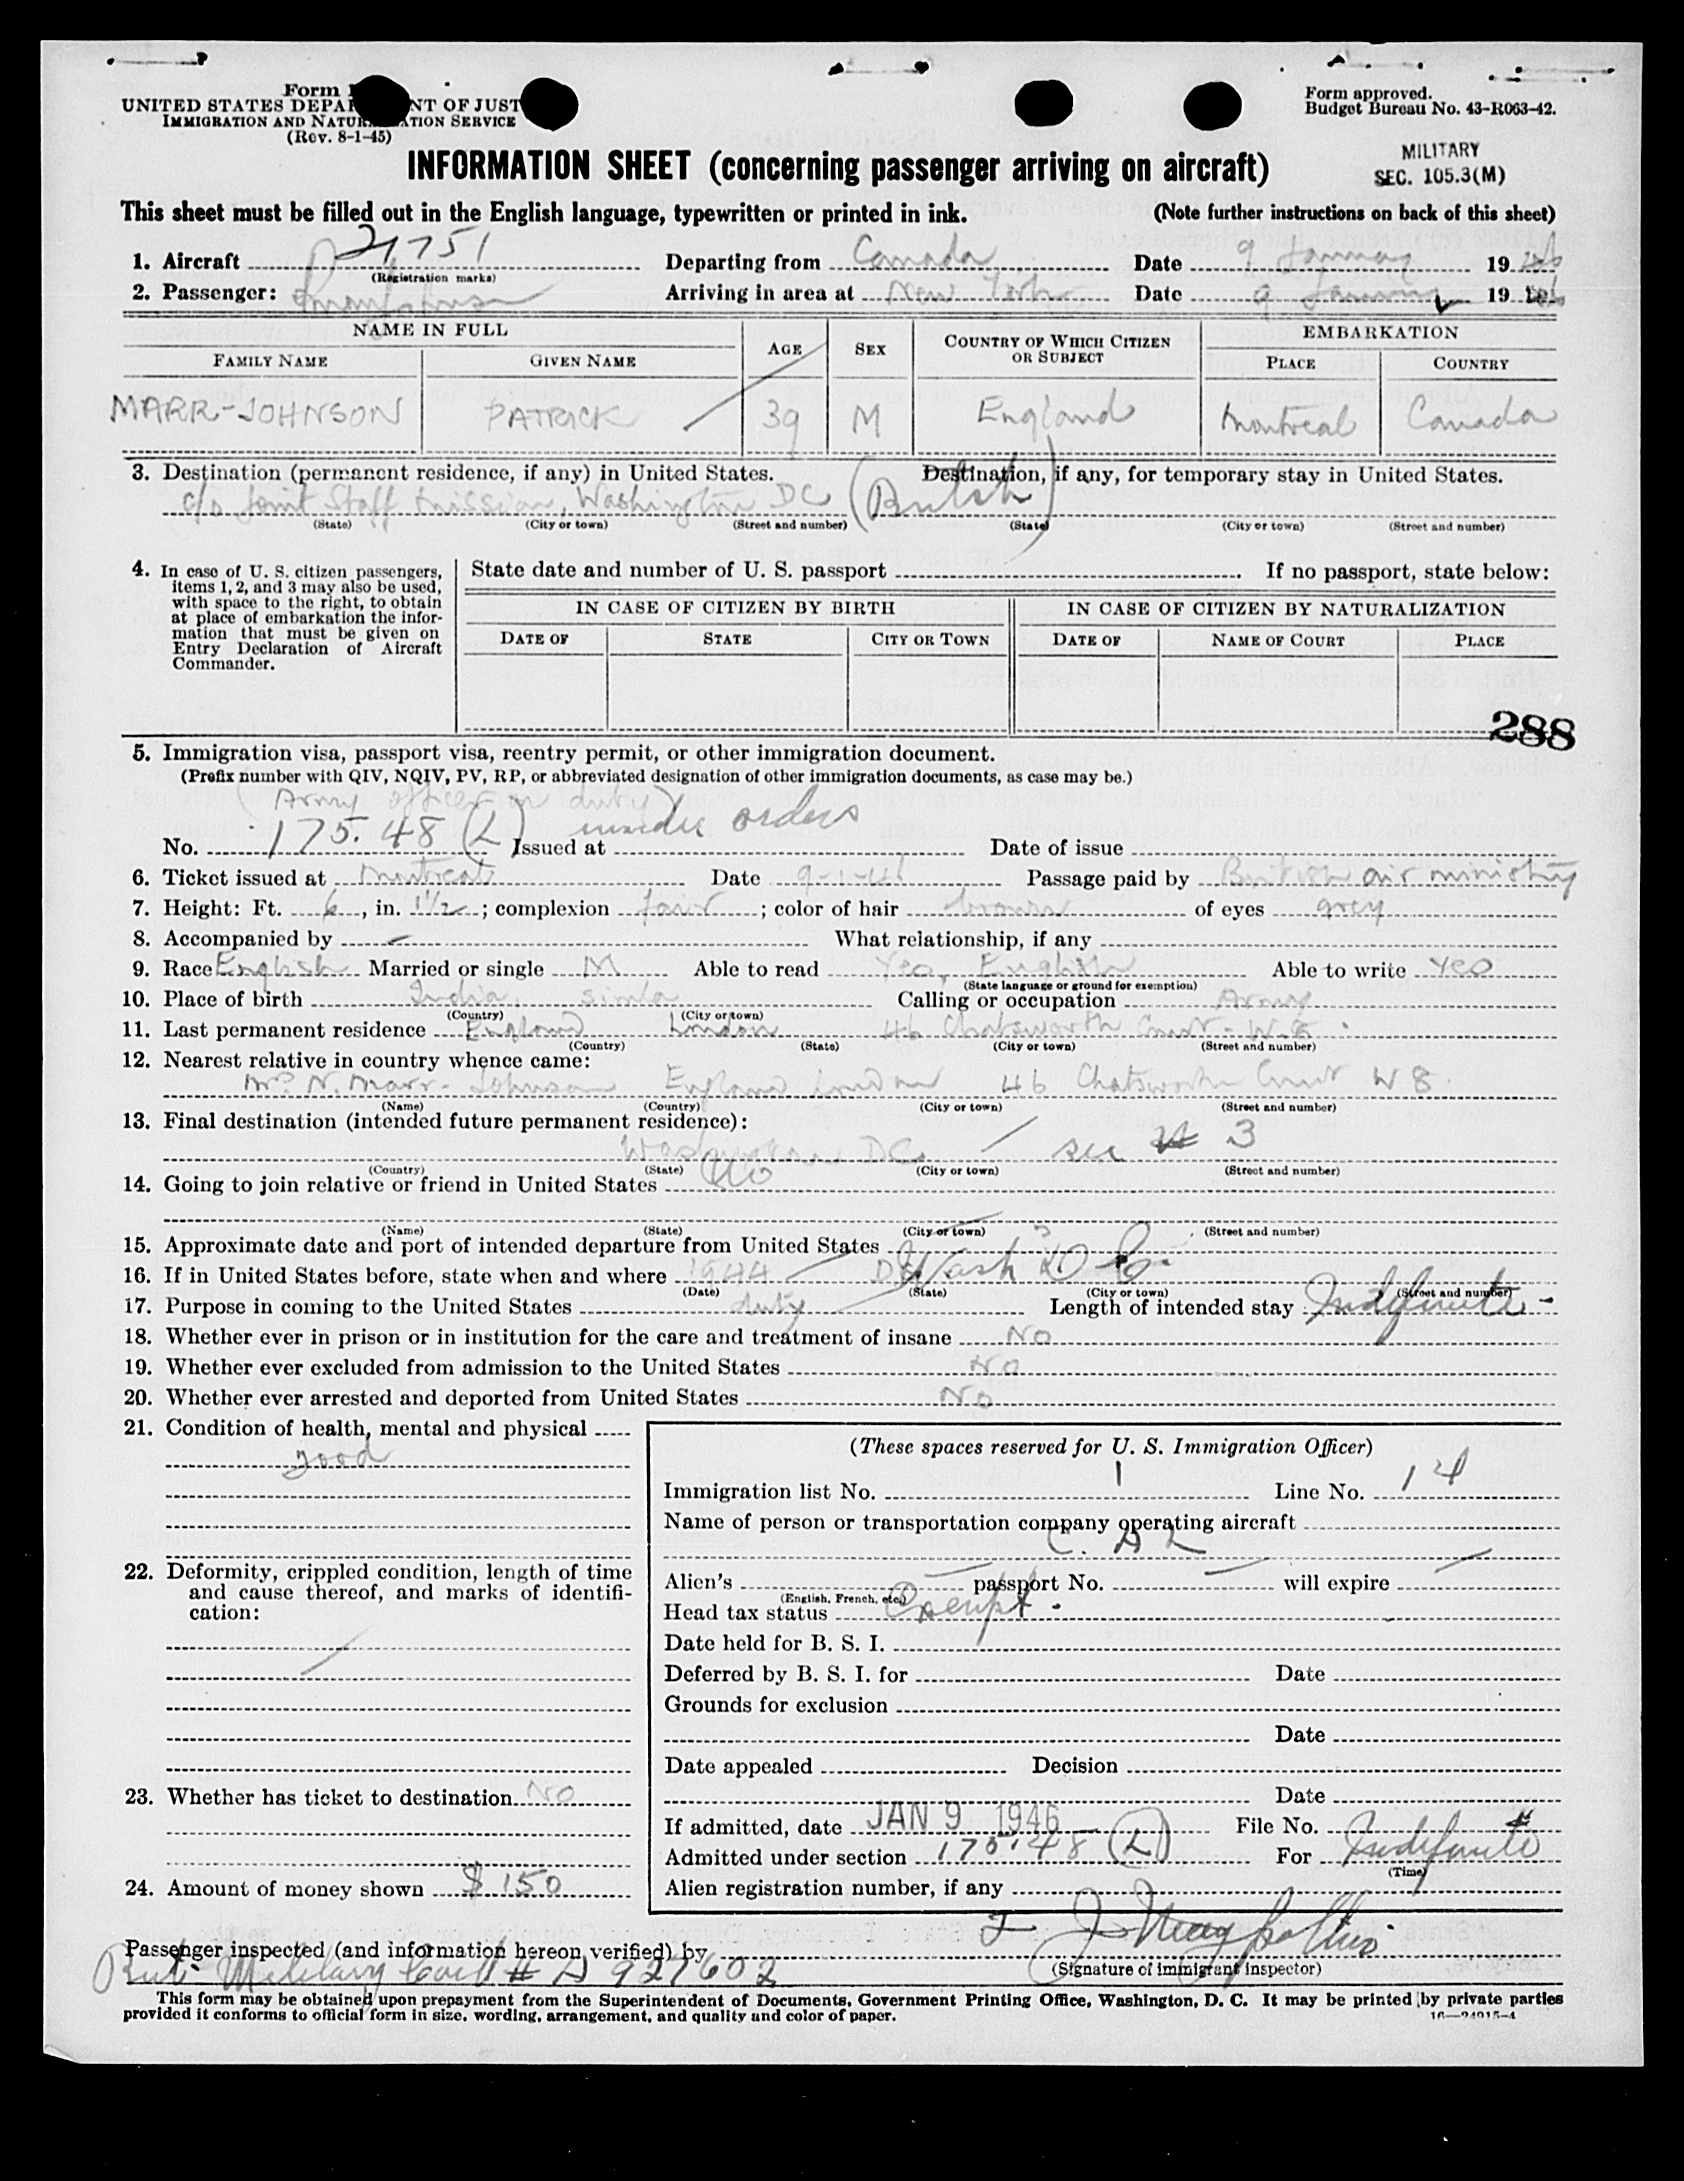 Form
UNITED STATES DEPA NT OF JUST
IMMIGRATION AND NATUR ATION SERVICE
(Rev. 8-1-45)
Form approved.
Budget Bureau No. 43-R063-42.
INFORMATION SHEET (concerning passenger arriving on aircraft)
MILITARY
SEC. 105.3(M)
This sheet must be filled out in the English language, typewritten or printed in ink. (Note further instructions on back of this sheet)
1. Aircraft 21751 Departing from Canada Date 9 January 1946
(Registration marks)
2. Passenger: Arriving in area at New York Date 9 January 1946
NAME IN FULL AGE SEX COUNTRY OF WHICH CITIZEN OR SUBJECT EMBARKATION
FAMILY NAME GIVEN NAME PLACE COUNTRY
MARR-JOHNSON PATRICK 39 M England Montreal Canada
3. Destination (permanent residence, if any) in United States. Destination, if any, for temporary stay in United States.
c/o Joint Staff Mission, Washington DC (British)
(State) (City or town) (Street and number) (State) (City or town) (Street and number)
4. In case of U. S. citizen passengers, items 1, 2, and 3 may also be used, with space to the right, to obtain at place of embarkation the information that must be given on Entry Declaration of Aircraft Commander.
State date and number of U. S. passport . If no passport, state below:
IN CASE OF CITIZEN BY BIRTH IN CASE OF CITIZEN BY NATURALIZATION
DATE OF STATE CITY OR TOWN DATE OF NAME OF COURT PLACE
288
5. Immigration visa, passport visa, reentry permit, or other immigration document.
(Prefix number with QIV, NQIV, PV, RP, or abbreviated designation of other immigration documents, as case may be.)
(Army officer on duty) under orders
No. 175.48 (L) Issued at Date of issue
6. Ticket issued at Montreal Date 9-1-46 Passage paid by British air ministry
7. Height: Ft. 6, in. 1½; complexion fair; color of hair brown of eyes grey
8. Accompanied by — What relationship, if any
9. Race English Married or single M Able to read Yes, English Able to write Yes
(State language or ground for exemption)
10. Place of birth India, Simla Calling or occupation Army
(Country) (City or town)
11. Last permanent residence England London 46 Chatsworth Court - W.8.
(Country) (State) (City or town) (Street and number)
12. Nearest relative in country whence came:
Mrs N. Marr-Johnson England London 46 Chatsworth Court W 8.
(Name) (Country) (City or town) (Street and number)
13. Final destination (intended future permanent residence):
Washington DC / see # 3
(Country) (State) (City or town) (Street and number)
14. Going to join relative or friend in United States No
(Name) (State) (City or town) (Street and number)
15. Approximate date and port of intended departure from United States ?
16. If in United States before, state when and where 1944 DC Wash D C.
(Date) (State) (City or town) (Street and number)
17. Purpose in coming to the United States duty Length of intended stay Indefinite -
18. Whether ever in prison or in institution for the care and treatment of insane No
19. Whether ever excluded from admission to the United States No
20. Whether ever arrested and deported from United States No
21. Condition of health, mental and physical
good
22. Deformity, crippled condition, length of time and cause thereof, and marks of identification:
23. Whether has ticket to destination No
24. Amount of money shown $ 150
(These spaces reserved for U. S. Immigration Officer)
Immigration list No. 1 Line No. 14
Name of person or transportation company operating aircraft
C. A L
Alien's — passport No. — will expire —
(English, French, etc.)
Head tax status Exempt.
Date held for B. S. I.
Deferred by B. S. I. for Date
Grounds for exclusion
Date
Date appealed Decision
Date
If admitted, date JAN 9 1946 File No.
Admitted under section 175.48 (L) For Indefinite
(Time)
Alien registration number, if any
Passenger inspected (and information hereon verified) by
(Signature of immigrant inspector)
Brit. Military Card # A 927602
This form may be obtained upon prepayment from the Superintendent of Documents, Government Printing Office, Washington, D. C. It may be printed by private parties
provided it conforms to official form in size, wording, arrangement, and quality and color of paper. 16—24915-4